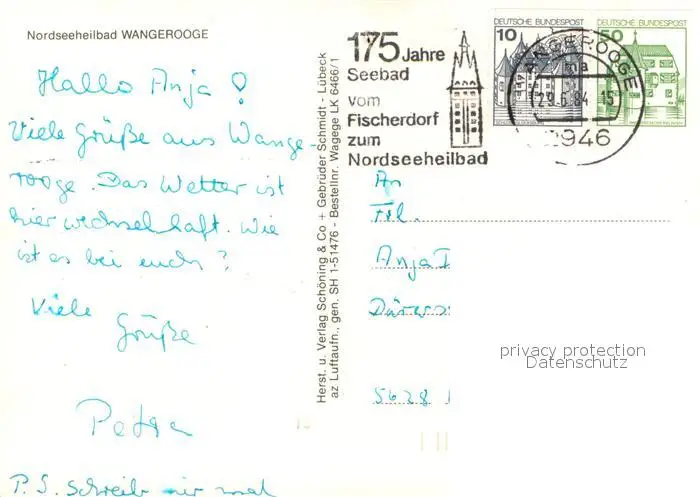 Nordseeheilbad WANGEROOGE
Hallo Anja!
Viele Grüße aus Wange-
rooge. Das Wetter ist
hier wechselhaft. Wie
ist es bei euch?
Viele
Grüße
Petra
P.S. Schreib mir mal
Herst. u. Verlag Schöning & Co + Gebrüder Schmidt - Lübeck
az Luftaufn., gen. SH 1-51476 - Bestellnr. Wagege LK 6466/1
175 Jahre
Seebad
vom
Fischerdorf
zum
Nordseeheilbad
DEUTSCHE BUNDESPOST
10
DEUTSCHE BUNDESPOST
50
WANGEROOGE
ma
29.6.84 15
2946
An
Frl.
Anja
5628
privacy protection
Datenschutz